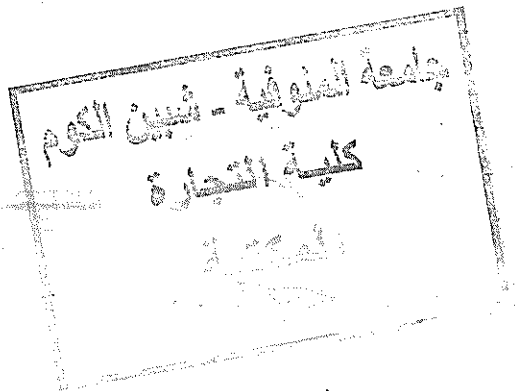 جامعة المنوفية - شبين الكوم
كلية التجارة
المكتبة